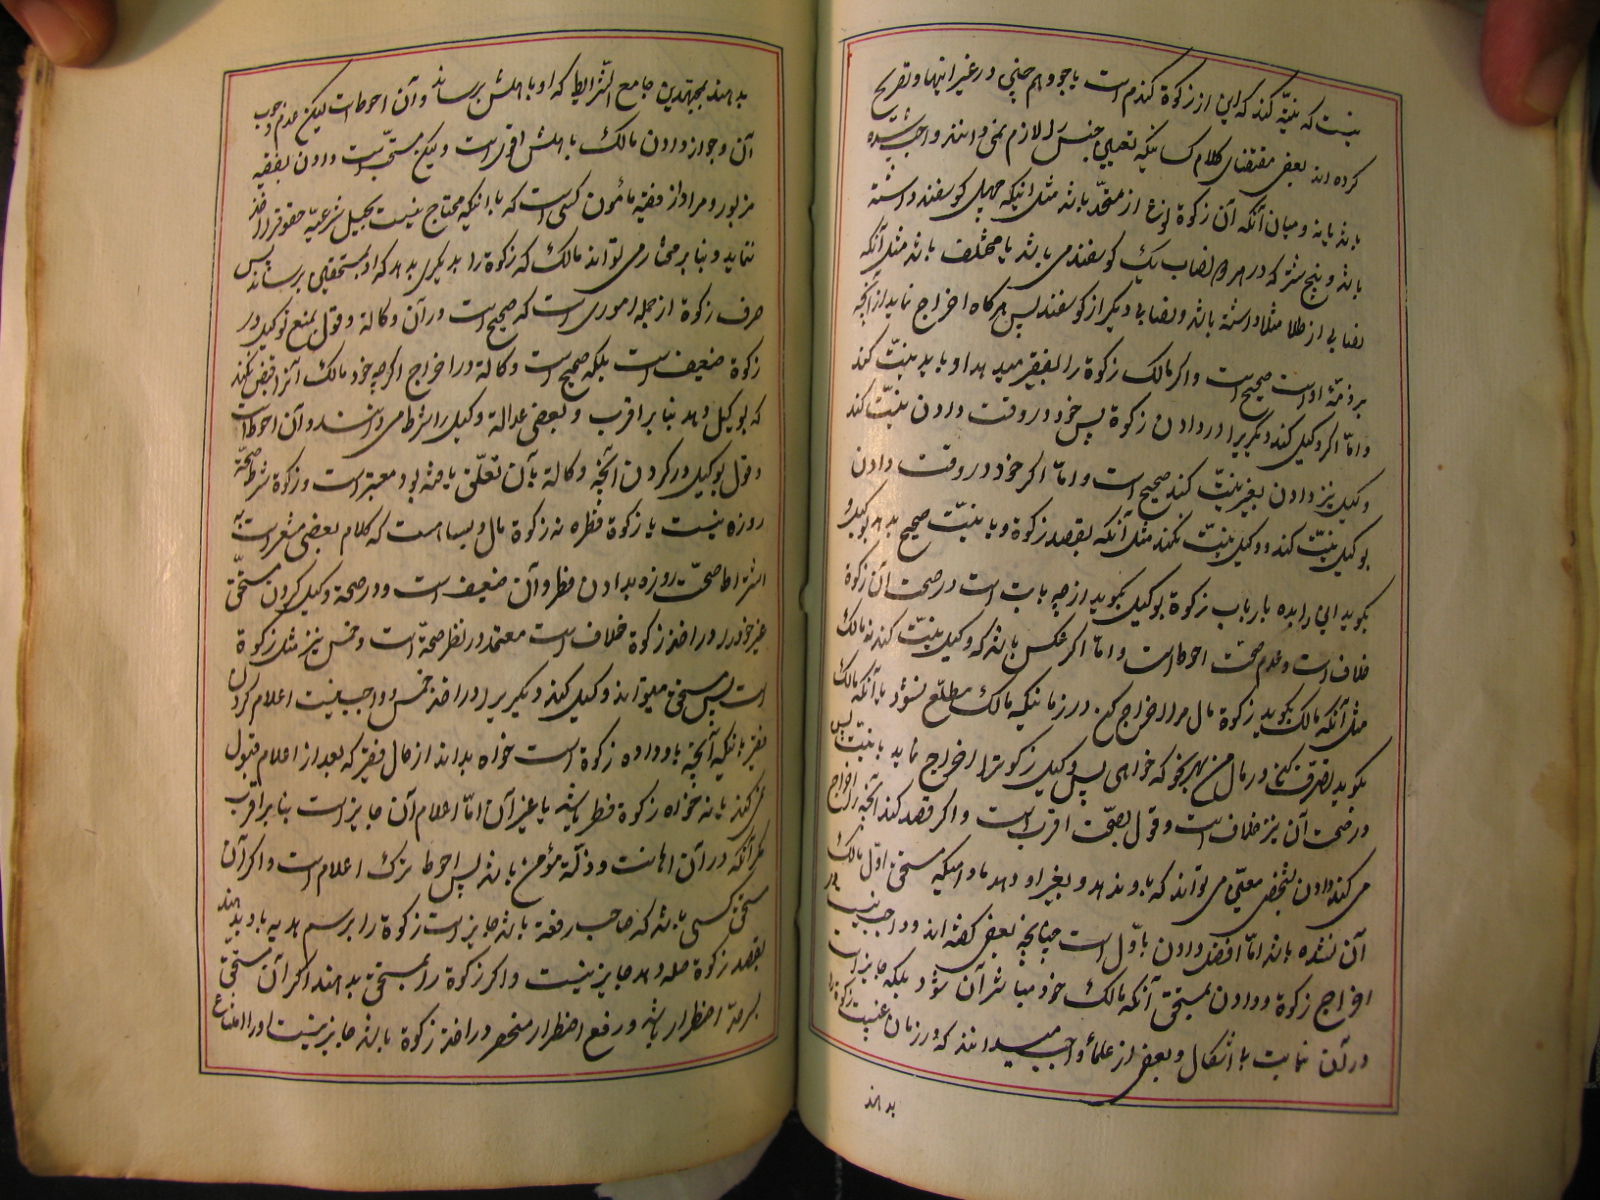 نیست که نیّة کند که این از زکوة کندم است یا جو و هم چنین در غیر اینها و تصریح
کرده اند بعضی مقتضای کلام کسانیکه تعیین جنس را لازم نمی دانند واجب شده
باشد یا نه و میان آنکه آن زکوة از متحد باشد مثل اینکه چهل کوسفند داشته
باشد و پنج شتر که در هر دو نصاب یک کوسفند می باشد یا مختلف باشد مثل آنکه
نصابی از طلا مثلا داشته باشد و نصابی دیکر از کوسفند پس هرکاه اخراج نماید از آنچه
بر ذمّهٔ اوست صحیح است و اکر مالک زکوة را بفقیر میدهد او باید نیّت کند
و امّا اکر وکیل کند دیکریرا در دادن زکوة پس خود در وقت دادن نیّت کند
وکیل نیز دادن بفقیر نیّت کند صحیح است و امّا اکر خود در وقت دادن
بوکیل نیّت کند و وکیل نیّت نکند مثل آنکه بقصد زکوة و با نیّت صحیح بدهد بوکیل و
بکوید این را بده بارباب زکوة بوکیل نکوید از چه بابت است در صحت آن زکوة
خلاف است و عدم صحّت احوط است و امّا اکر عکس باشد که وکیل نیّت کند نه مالک
مثل آنکه مالک بکوید زکوة مال مرا اخراج کن در زمانیکه مالک مطلع نشود یا آنکه مالک
بکوید تصرف کن در مال من بهر نحو که خواهی پس وکیل زکوة را اخراج نماید با نیّت پس
در صحت آن نیز خلاف است و قول بصحّت اقرب است و اکر قصد کند آنچه را اخراج
می کند دادن بشخص معیّن می تواند که باو ندهد و بغیر او دهد مادامیکه مستحق اوّل مالک
آن نشده باشد امّا افضل دادن باوّل است چنانچه بعضی کفته اند و واجب نیست در
اخراج زکوة و دادن بمستحق آنکه مالک خود مباشر آن شود بلکه جایز است
در آن نیابت با اشکال و بعضی از علماء واجب میدانند که در زمان غیبت زکوة را
بدهند
بدهند بمجتهدین جامع الشرایط که او باهلش برساند و آن احوط است لیکن عدم وجوب
آن و جواز دادن مالک باهلش اقوی است و لیکن مستحبّ است دادن بفقیه
مزبور و مراد از فقیه مأمون کسی است که با اینکه محتاج نیست بحیل شرعیّه حقوق را اخذ
ننماید و بنا بر مختار می تواند مالک که زکوة را بدیکری بدهد که او بمستحقین برساند پس
صرف زکوة از جمله اموری است که صحیح است در آن وکالة و قول بمنع توکیل در
زکوة ضعیف است بلکه صحیح است وکالة در اخراج اکر چه خود مالک آنرا قبض نکند
که بوکیل دهد بنا بر اقرب و بعضی عدالة وکیل را شرط می دانند و آن احوط است
و قول بوکیل در کردن آنچه وکالة بآن تعلّق یافته بود معتبر است و زکوة شرط صحّة
روزه نیست یا زکوة فطره نه زکوة مال و بسا است که کلام بعضی مشعر است به
اشتراط صحّت روزه بدادن فطر و آن ضعیف است و در صحة وکیل کردن مستحق
غیر خود را در اخذ زکوة خلاف است معتمد در نظر صحّة است و خمس نیز مثل زکوة
است پس مستحق میتواند وکیل کند دیکریرا در اخذ خمس و واجب نیست اعلام کردن
بفقیر باینکه آنچه باو داده زکوة است خواه بداند از حال فقیر که بعد از اعلام قبول
نمی کند یا نه خواه زکوة فطر باشد یا غیر آن امّا اعلام آن جایز است بنا بر اقرب
مکر آنکه در آن اهانت و ذلّة مؤمن باشد پس احوط ترک اعلام است و اکر آن
مستحق کسی باشد که صاحب رفعة باشد جایز است زکوة را برسم هدیه باو بدهند
بقصد زکوة صله دهد جایز نیست و اکر زکوة را بمستحق بدهند اکر آن مستحق
بسرحدّ اضطرار باشد و رفع اضطرار منحصر در اخذ زکوة باشد جایز نیست او را امتناع